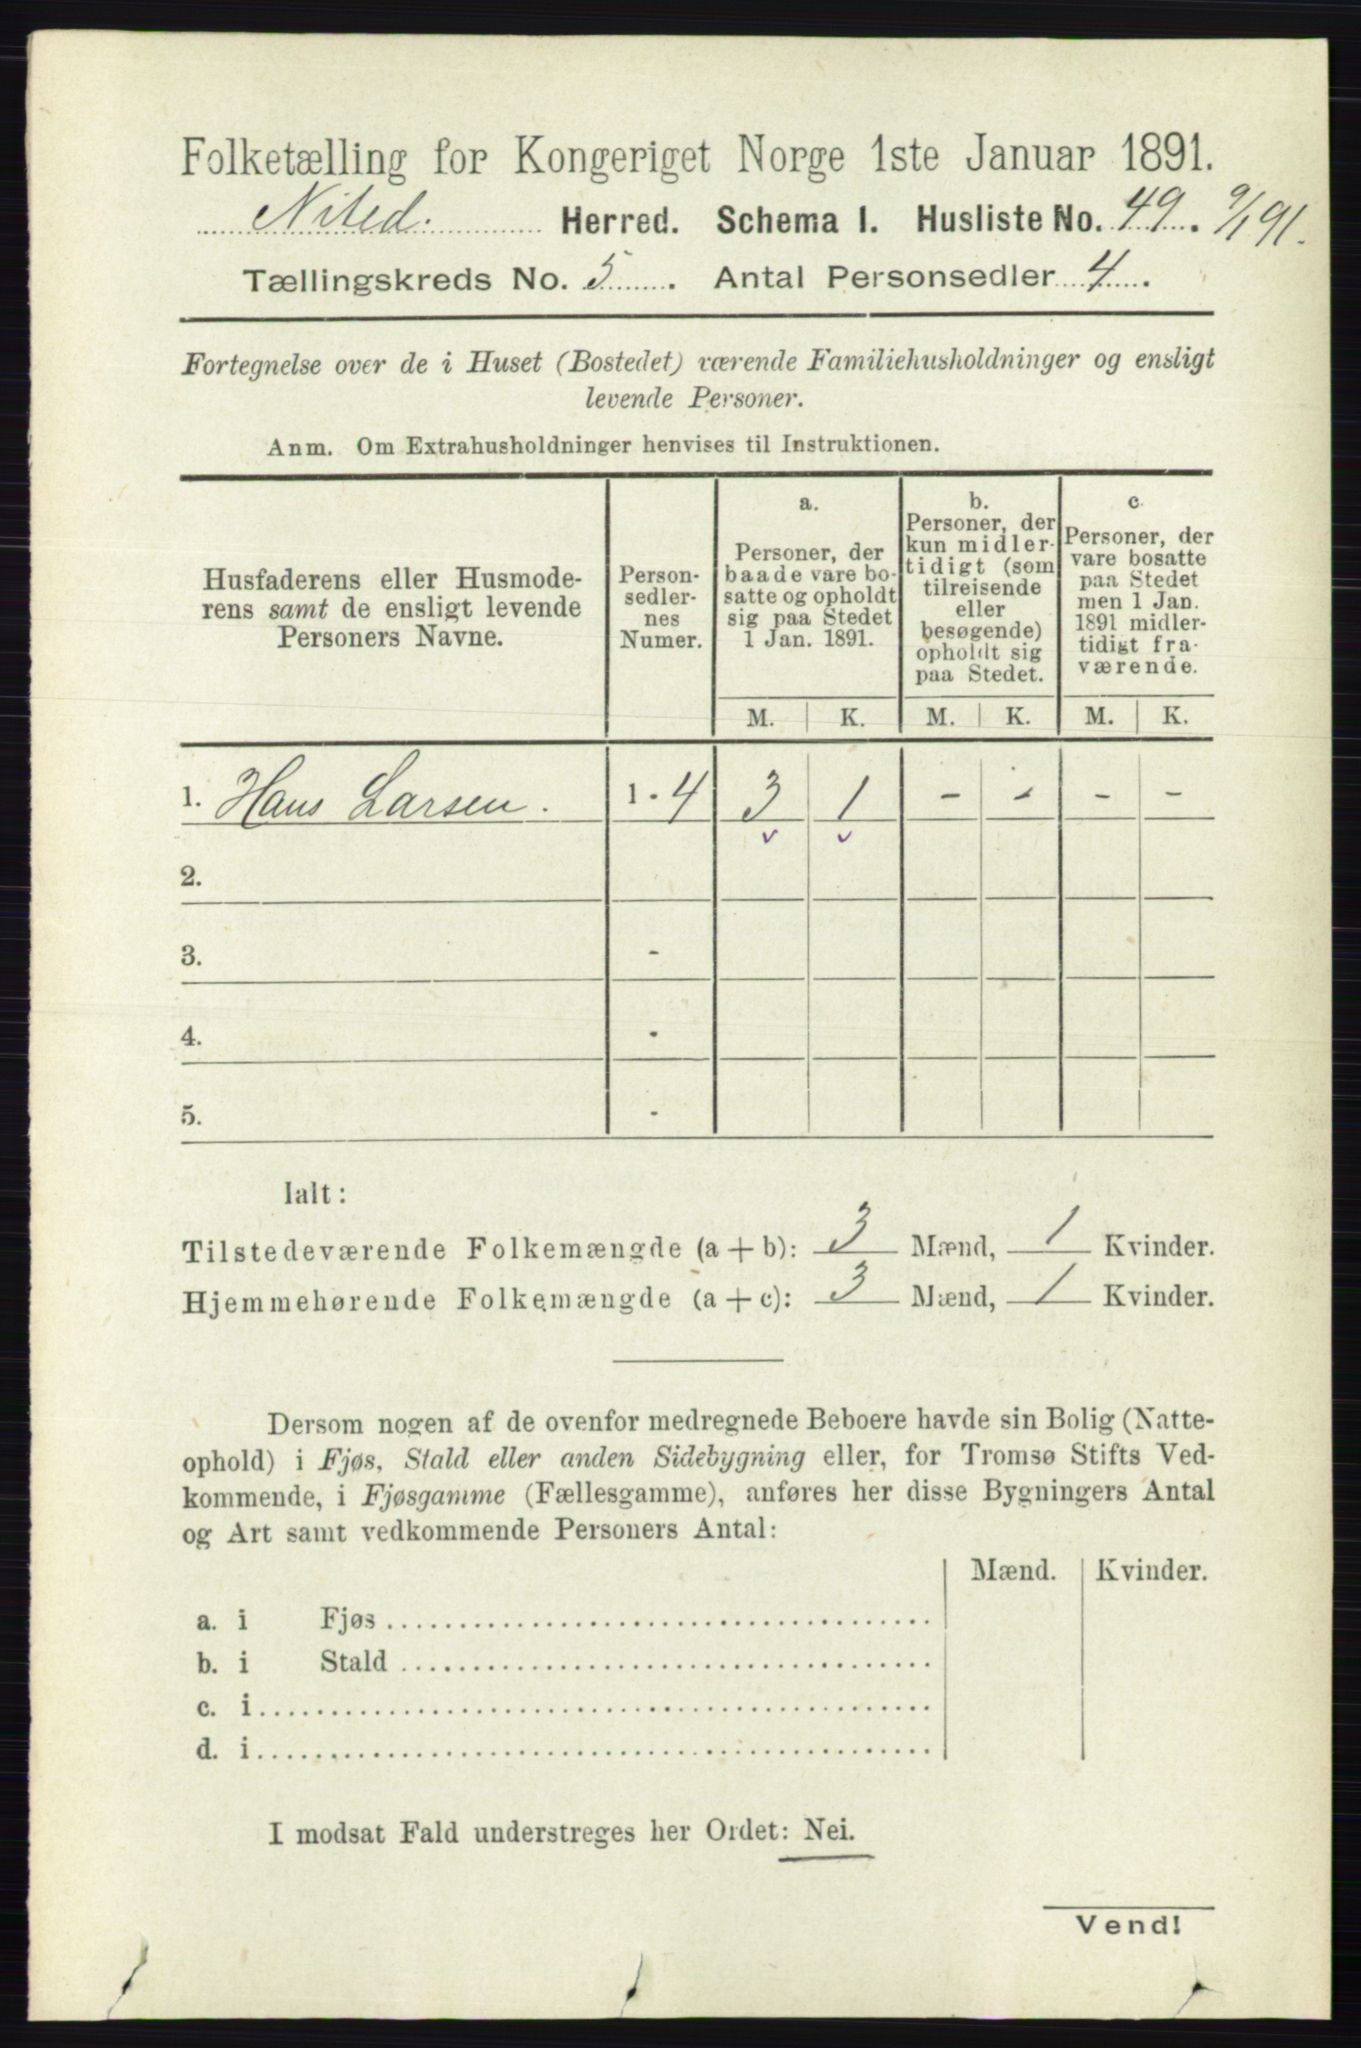 Folketælling for Kongeriget Norge 1ste Januar 1891.
Nited. Herred. Schema I. Husliste No. 49. 9/1 91.
Tællingskreds No. 5. Antal Personsedler 4.
Fortegnelse over de i Huset (Bostedet) værende Familiehusholdninger og ensligt
levende Personer.
Anm. Om Extrahusholdninger henvises til Instruktionen.
Husfaderens eller Husmode-
rens samt de ensligt levende
Personers Navne.
Person-
sedler-
nes
Numer.
a.
Personer, der
baade vare bo-
satte og opholdt
sig paa Stedet
1 Jan. 1891.
b.
Personer, der
kun midler-
tidigt (som
tilreisende
eller
besøgende)
opholdt sig
paa Stedet.
c.
Personer, der
vare bosatte
paa Stedet
men 1 Jan.
1891 midler-
tidigt fra-
værende.
M. K. M. K. M. K.
1. Hans Larsen. 1 - 4 3 1 - - - -
2.
3. -
4. -
5. -
Ialt:
Tilstedeværende Folkemængde (a + b): 3 Mænd, 1 Kvinder.
Hjemmehørende Folkemængde (a + c): 3 Mænd, 1 Kvinder.
Dersom nogen af de ovenfor medregnede Beboere havde sin Bolig (Natte-
ophold) i Fjøs, Stald eller anden Sidebygning eller, for Tromsø Stifts Ved-
kommende, i Fjøsgamme (Fællesgamme), anføres her disse Bygningers Antal
og Art samt vedkommende Personers Antal:
Mænd. Kvinder.
a. i Fjøs
b. i Stald
c. i
d. i
I modsat Fald understreges her Ordet: Nei.
Vend!